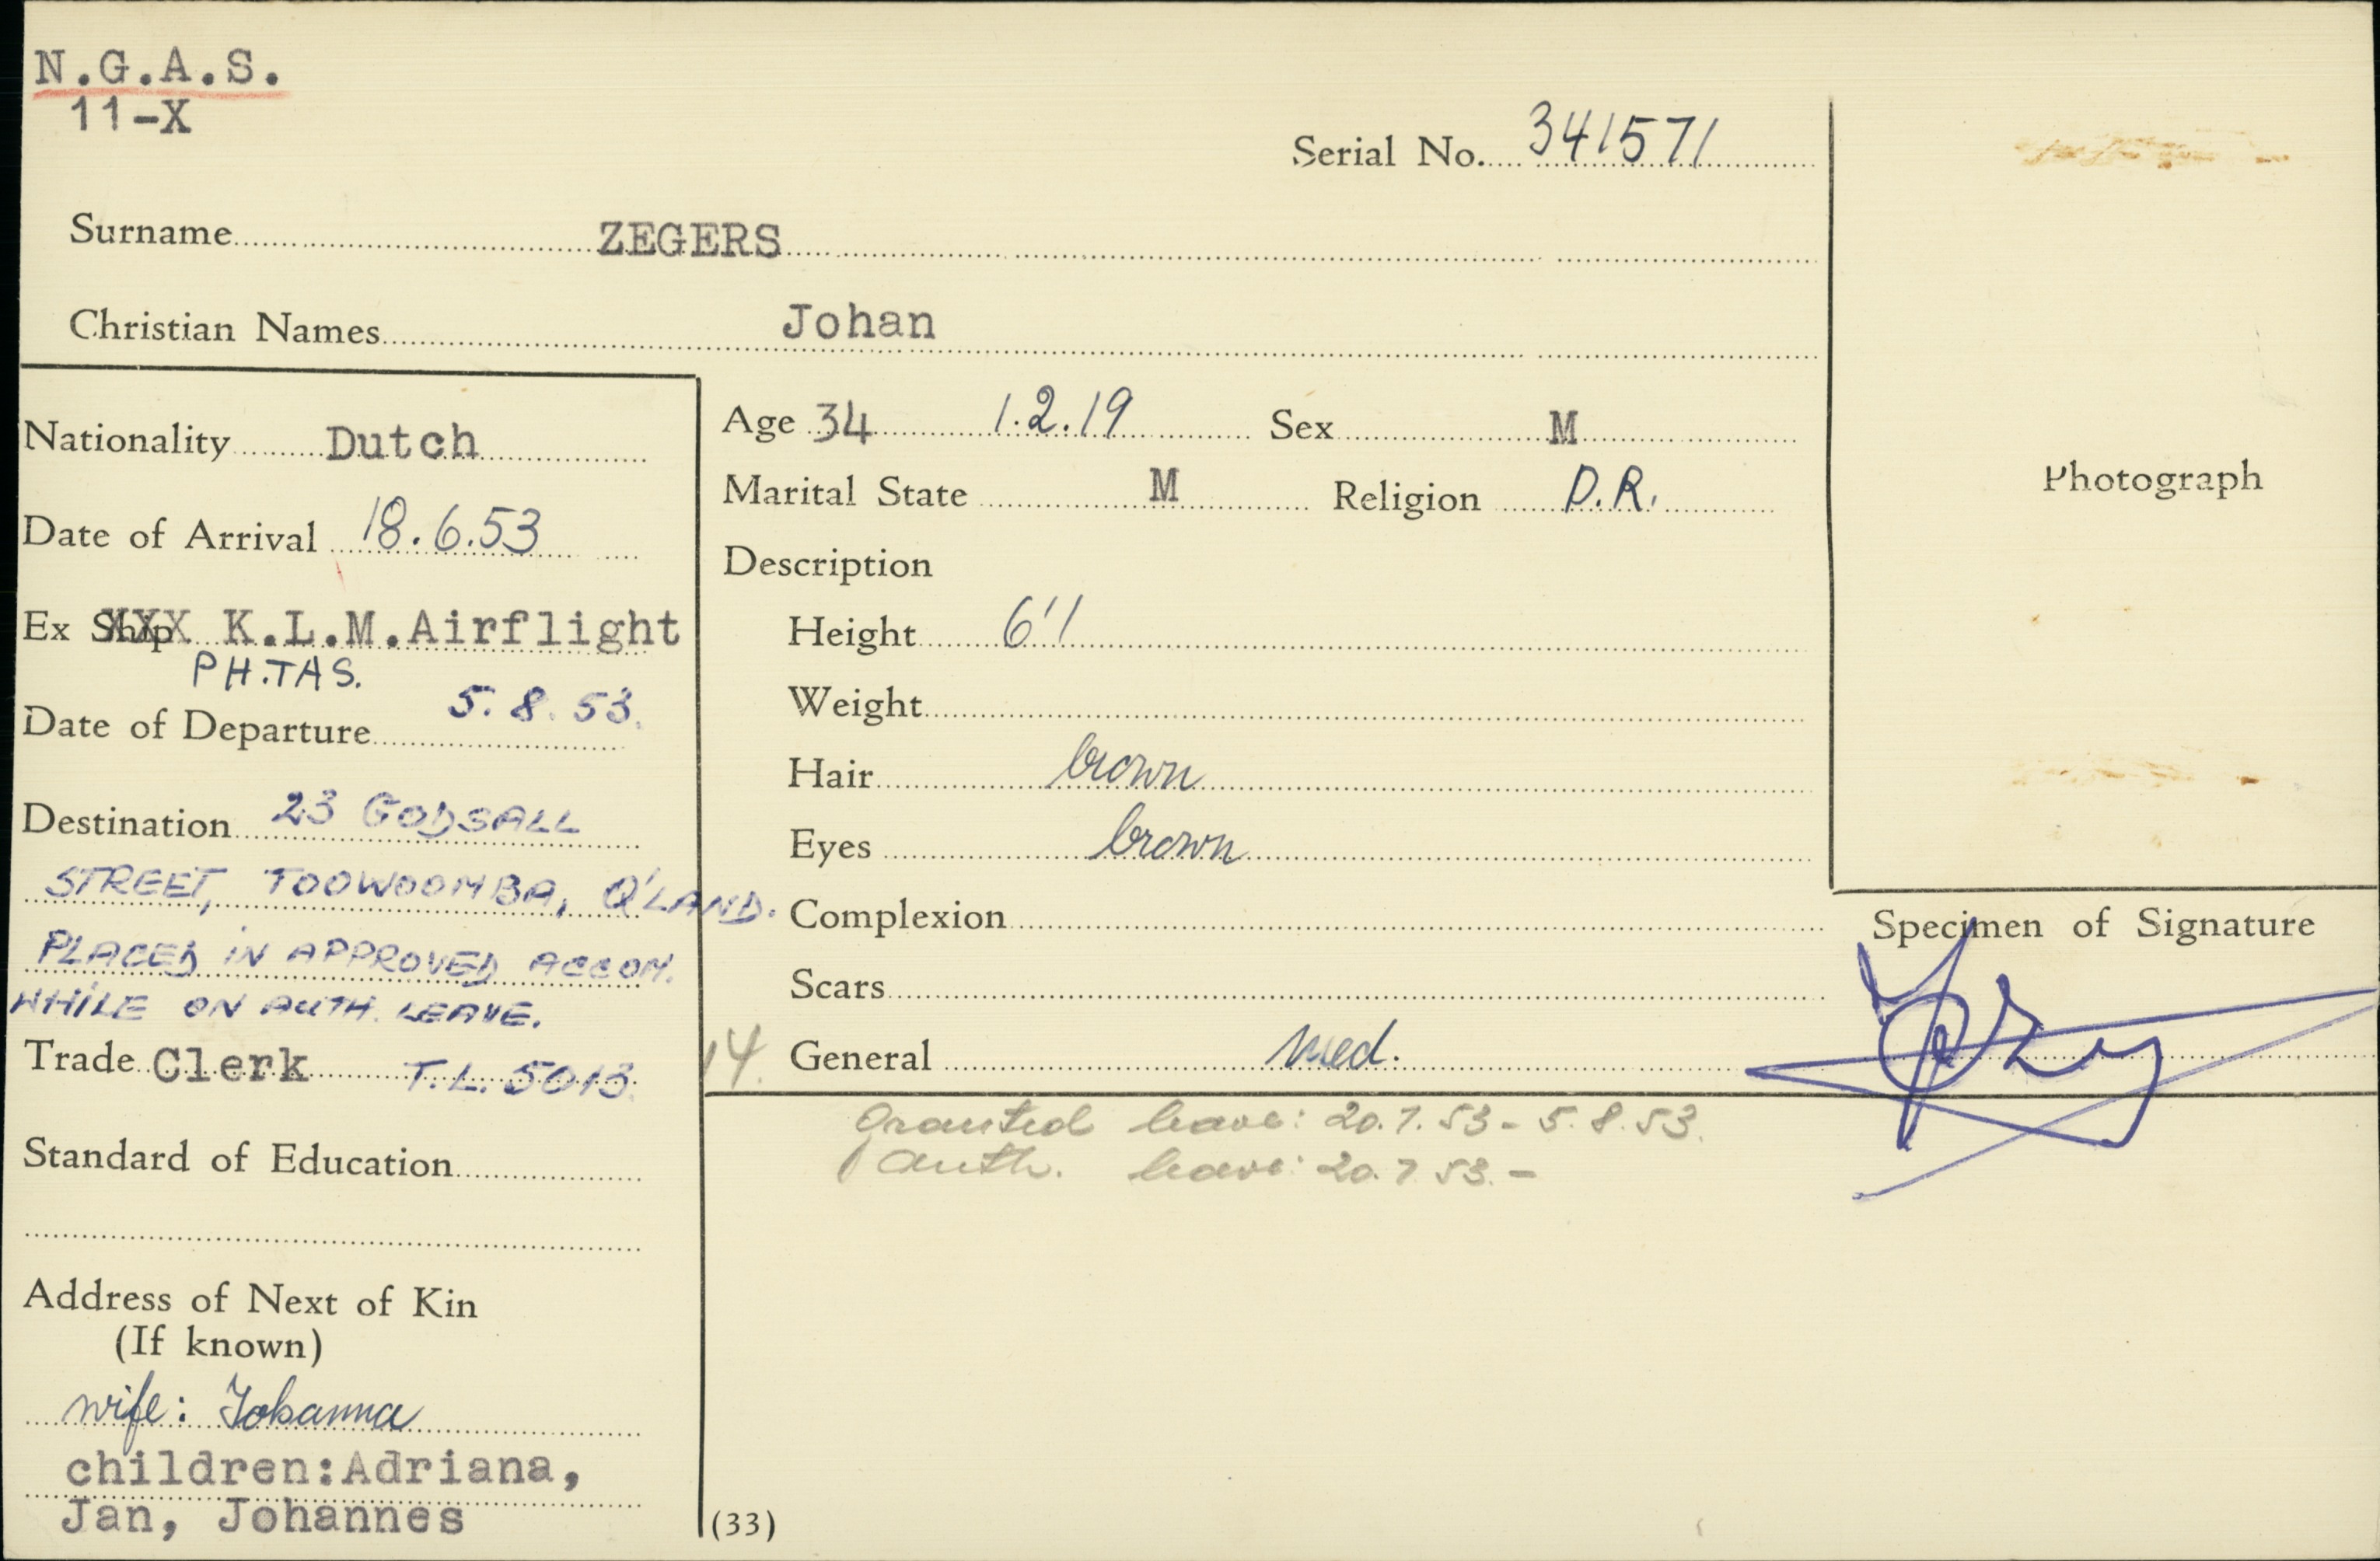 N.G.A.S.
11-X
Serial No. 341571
Surname ZEGERS
Christian Names Johan
Nationality Dutch
Date of Arrival 18.6.53
Ex Ship XXX K.L.M.Airflight
PH.TAS.
Date of Departure 5.8.53.
Destination 23 GODSALL
STREET, TOOWOOMBA, Q'LAND.
PLACED IN APPROVED ACCOM.
WHILE ON AUTH. LEAVE.
Trade Clerk T.L. 5013.
Standard of Education
Address of Next of Kin
(If known)
wife: Johanna
children:Adriana,
Jan, Johannes
Age 34 1.2.19 Sex M
Marital State M Religion D.R.
Description
Height 6'1
Weight
Hair brown
Eyes brown
Complexion
Scars
14. General Med.
Granted leave: 20.7.53 - 5.8.53.
Auth. leave: 20.7.53. -
(33)
Photograph
Specimen of Signature